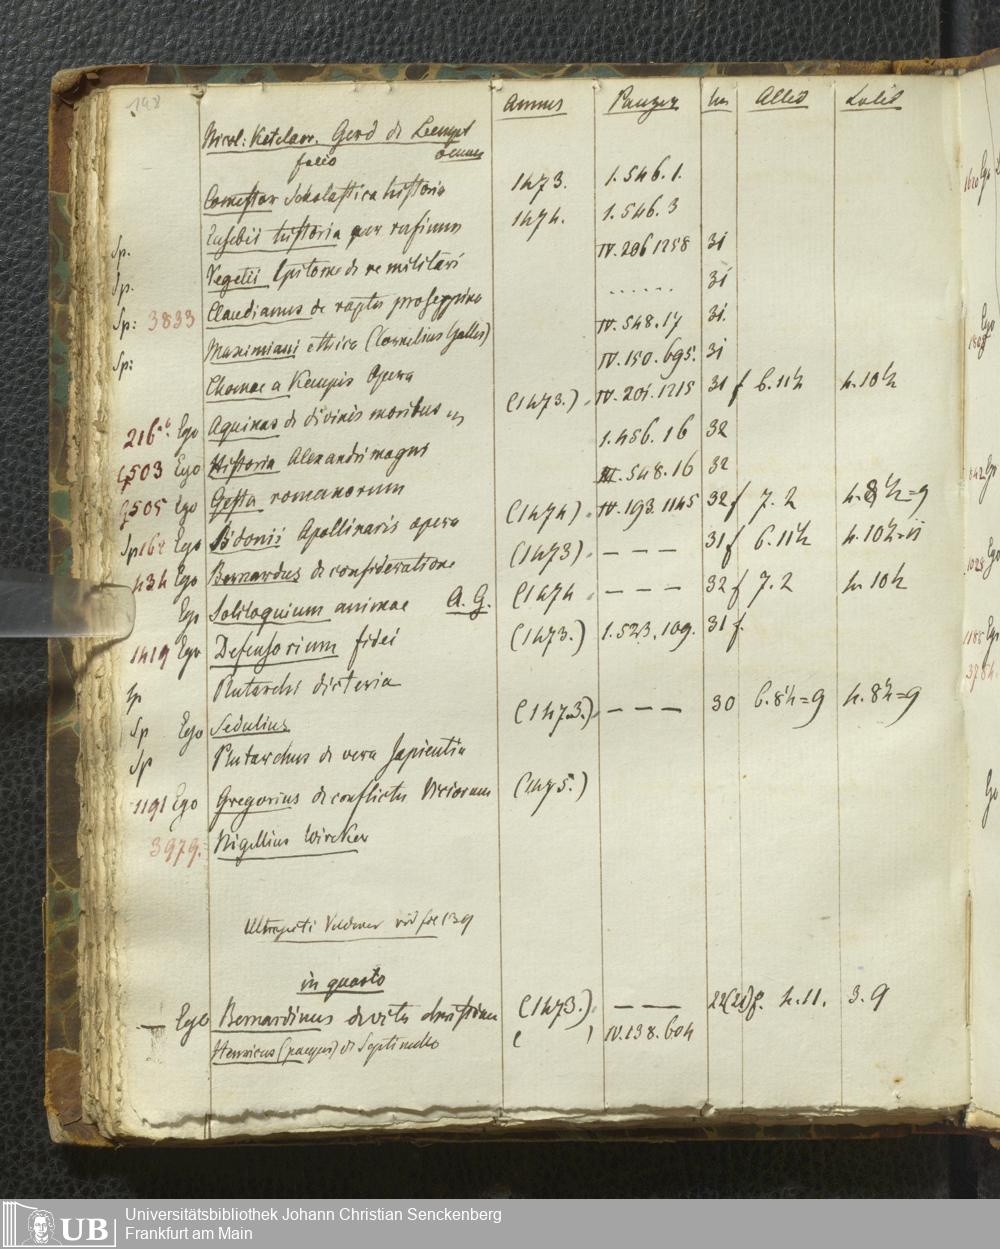 198
Annus Panzer lin Altit Latit
Nicol: Ketelaer. Gerd de Leempt
folio omnes
Comestor Scholastica historia 1473. 1.546.1.
Sp. Eusebii historia per rufinum 1474. 1.546.3
Sp. Vegetii Epitome de re militari IV.206 1258 31
Sp: 3833 Claudianus de raptu proserpine ...... 31
Sp: Maximiani ethica (Cornelius Gallus) IV.548.17 31.
Thomae a Kempis Opera IV.150.695. 31
216 Ego Aquinas de divinis moribus (1473.) IV.201.1215 31 f 6.11½ 4.10½
503 Ego Historia Alexandri magni 1.456.16 32
505 Ego Gesta romanorum III.548.16 32
Sp 162 Ego Sidonii Apollinaris opera (1474) IV.193.1145 32 f 7.2 4.8½=9
434 Ego Bernardus de consideratione (1473) – – – 31 f 6.11½ 4.10½=11
Ego Soliloquium animae A.G. (1474 – – – 32 f 7.2 4.10½
1419 Ego Defensorium fidei (1473.) 1.523.109. 31 f.
Sp Plutarchi dicteria
Sp Ego Sedulius (1473.) – – – 30 6.8½=9 4.8½=9
Sp Plutarchus de vera sapientia
1191 Ego Gregorius de conflictu Viciorum (1475.)
3979. Nigellius Wircker
Ultrajecti Veldener vid fol 139
in quarto
— Ego Bernardinus de vita christiana (1473.) — — 22(21)f. 4.11. 3.9
Henricus (pauper) de Septimello ( ) IV.138.604
1503
Ego
Ego
1028 Ego
1185 Ego
3784.
Ego
UB
Universitätsbibliothek Johann Christian Senckenberg
Frankfurt am Main